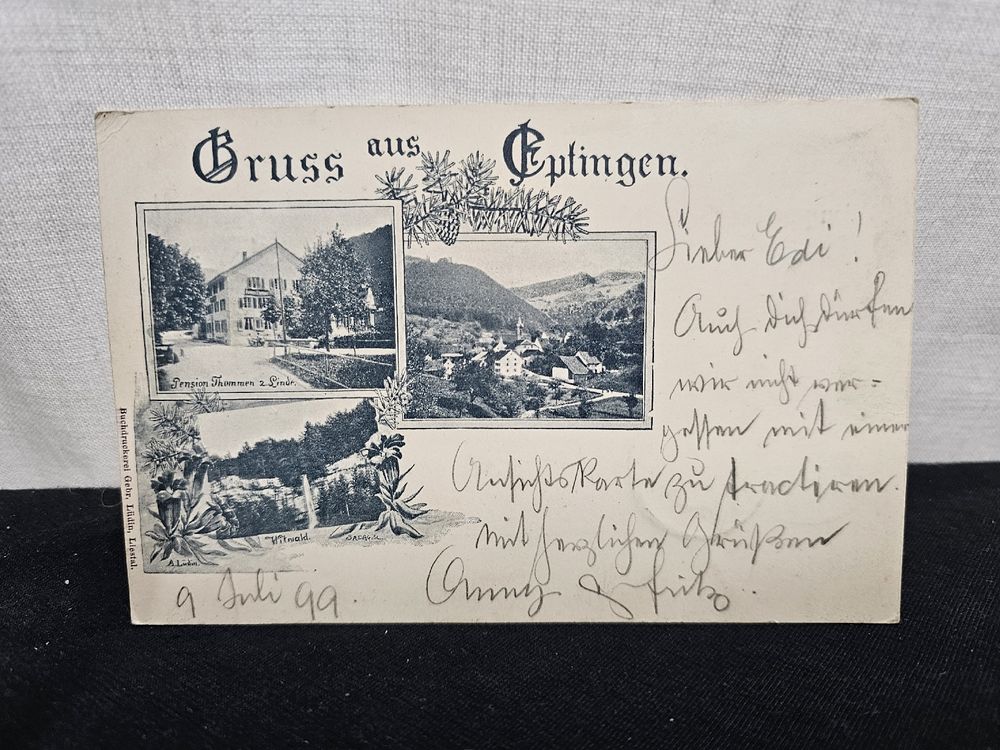 Gruss aus Eptingen.
Pension Thommen z Linde.
Witwald.
A. Lüdin.
Buchdruckerei Gebr. Lüdin, Liestal.
Lieber Edi!
Auch dich dürfen
wir nicht ver=
gessen mit einer
Ansichtskarte zu tractiren.
Mit herzlichen Grüßen
Anny & Fritz.
9 Juli 99.